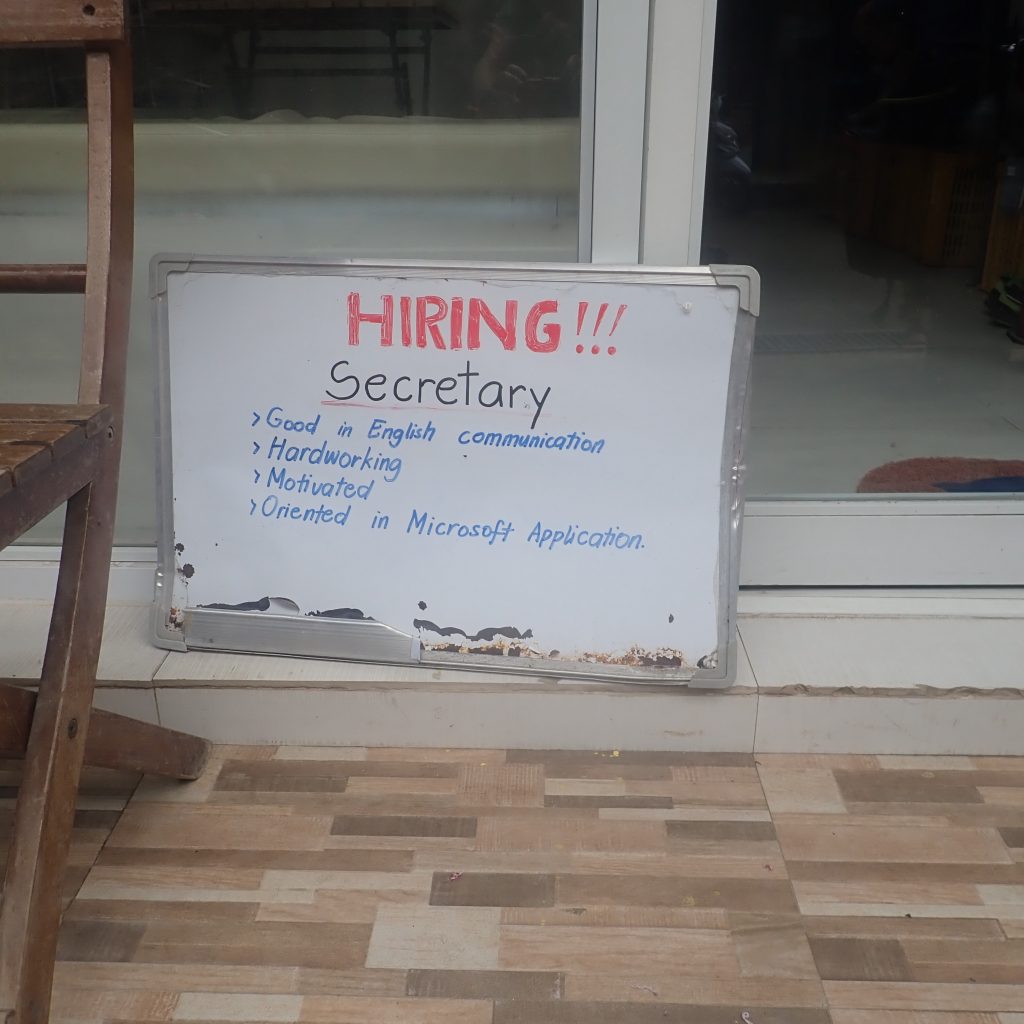 HIRING!!!
Secretary
> Good in English communication
> Hardworking
> Motivated
> Oriented in Microsoft Application.